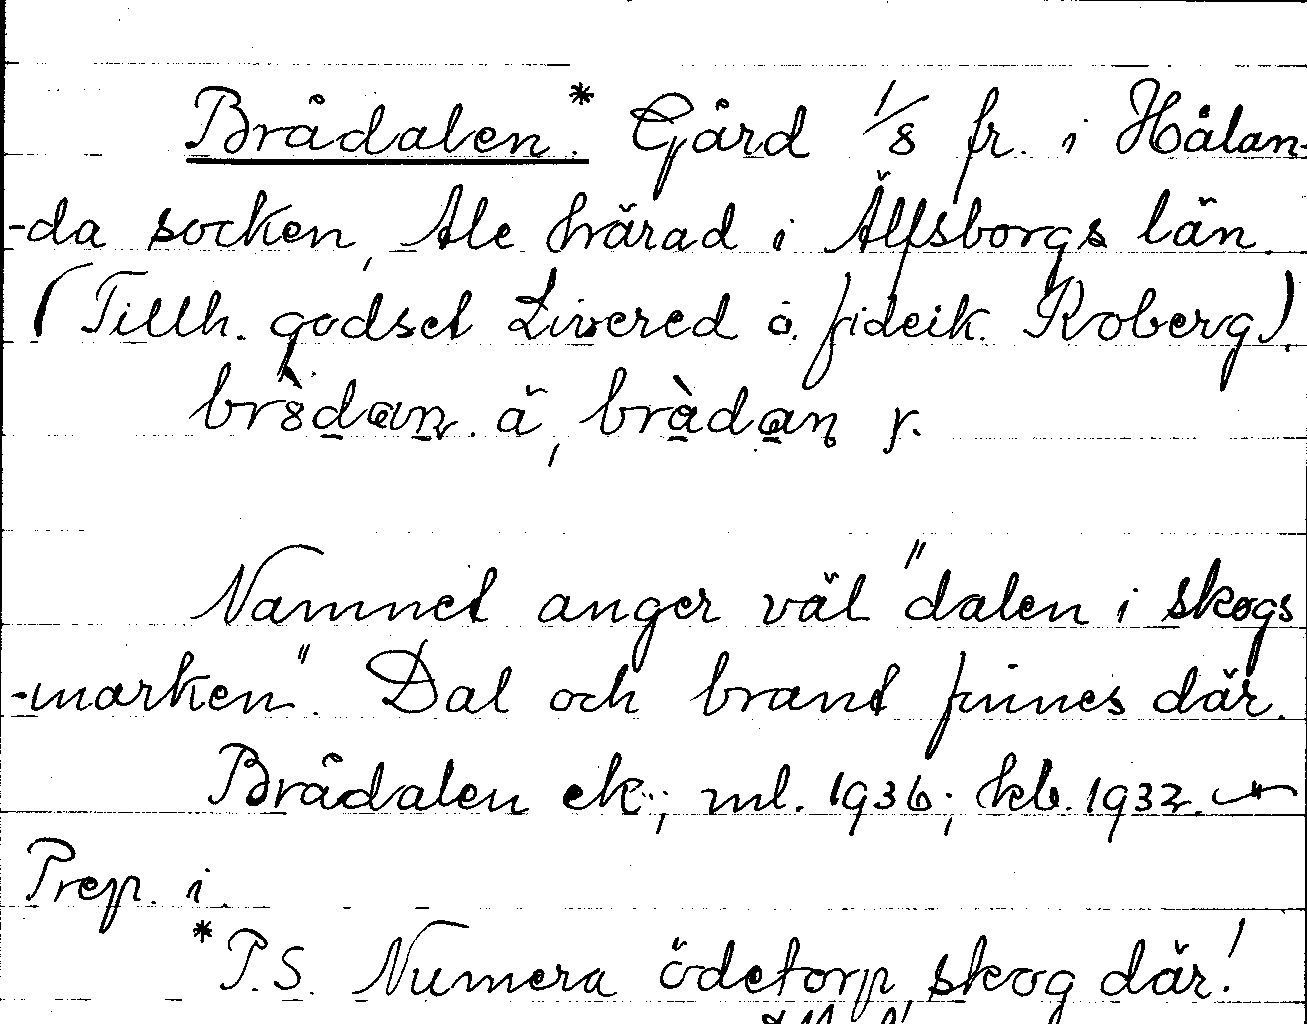 Brådalen.* Gård 1/8 fr. i Hålan-
-da socken, Ale härad i Älfsborgs län.
(Tillh. godset Livered o. fideik. Koberg).
ä, y.
Namnet anger väl "dalen i skogs
-marken". Dal och brant finnes där.
Brådalen ek.; ml. 1936; kb. 1932.
Prep. i.
*P.S. Numera ödetorp, skog där!